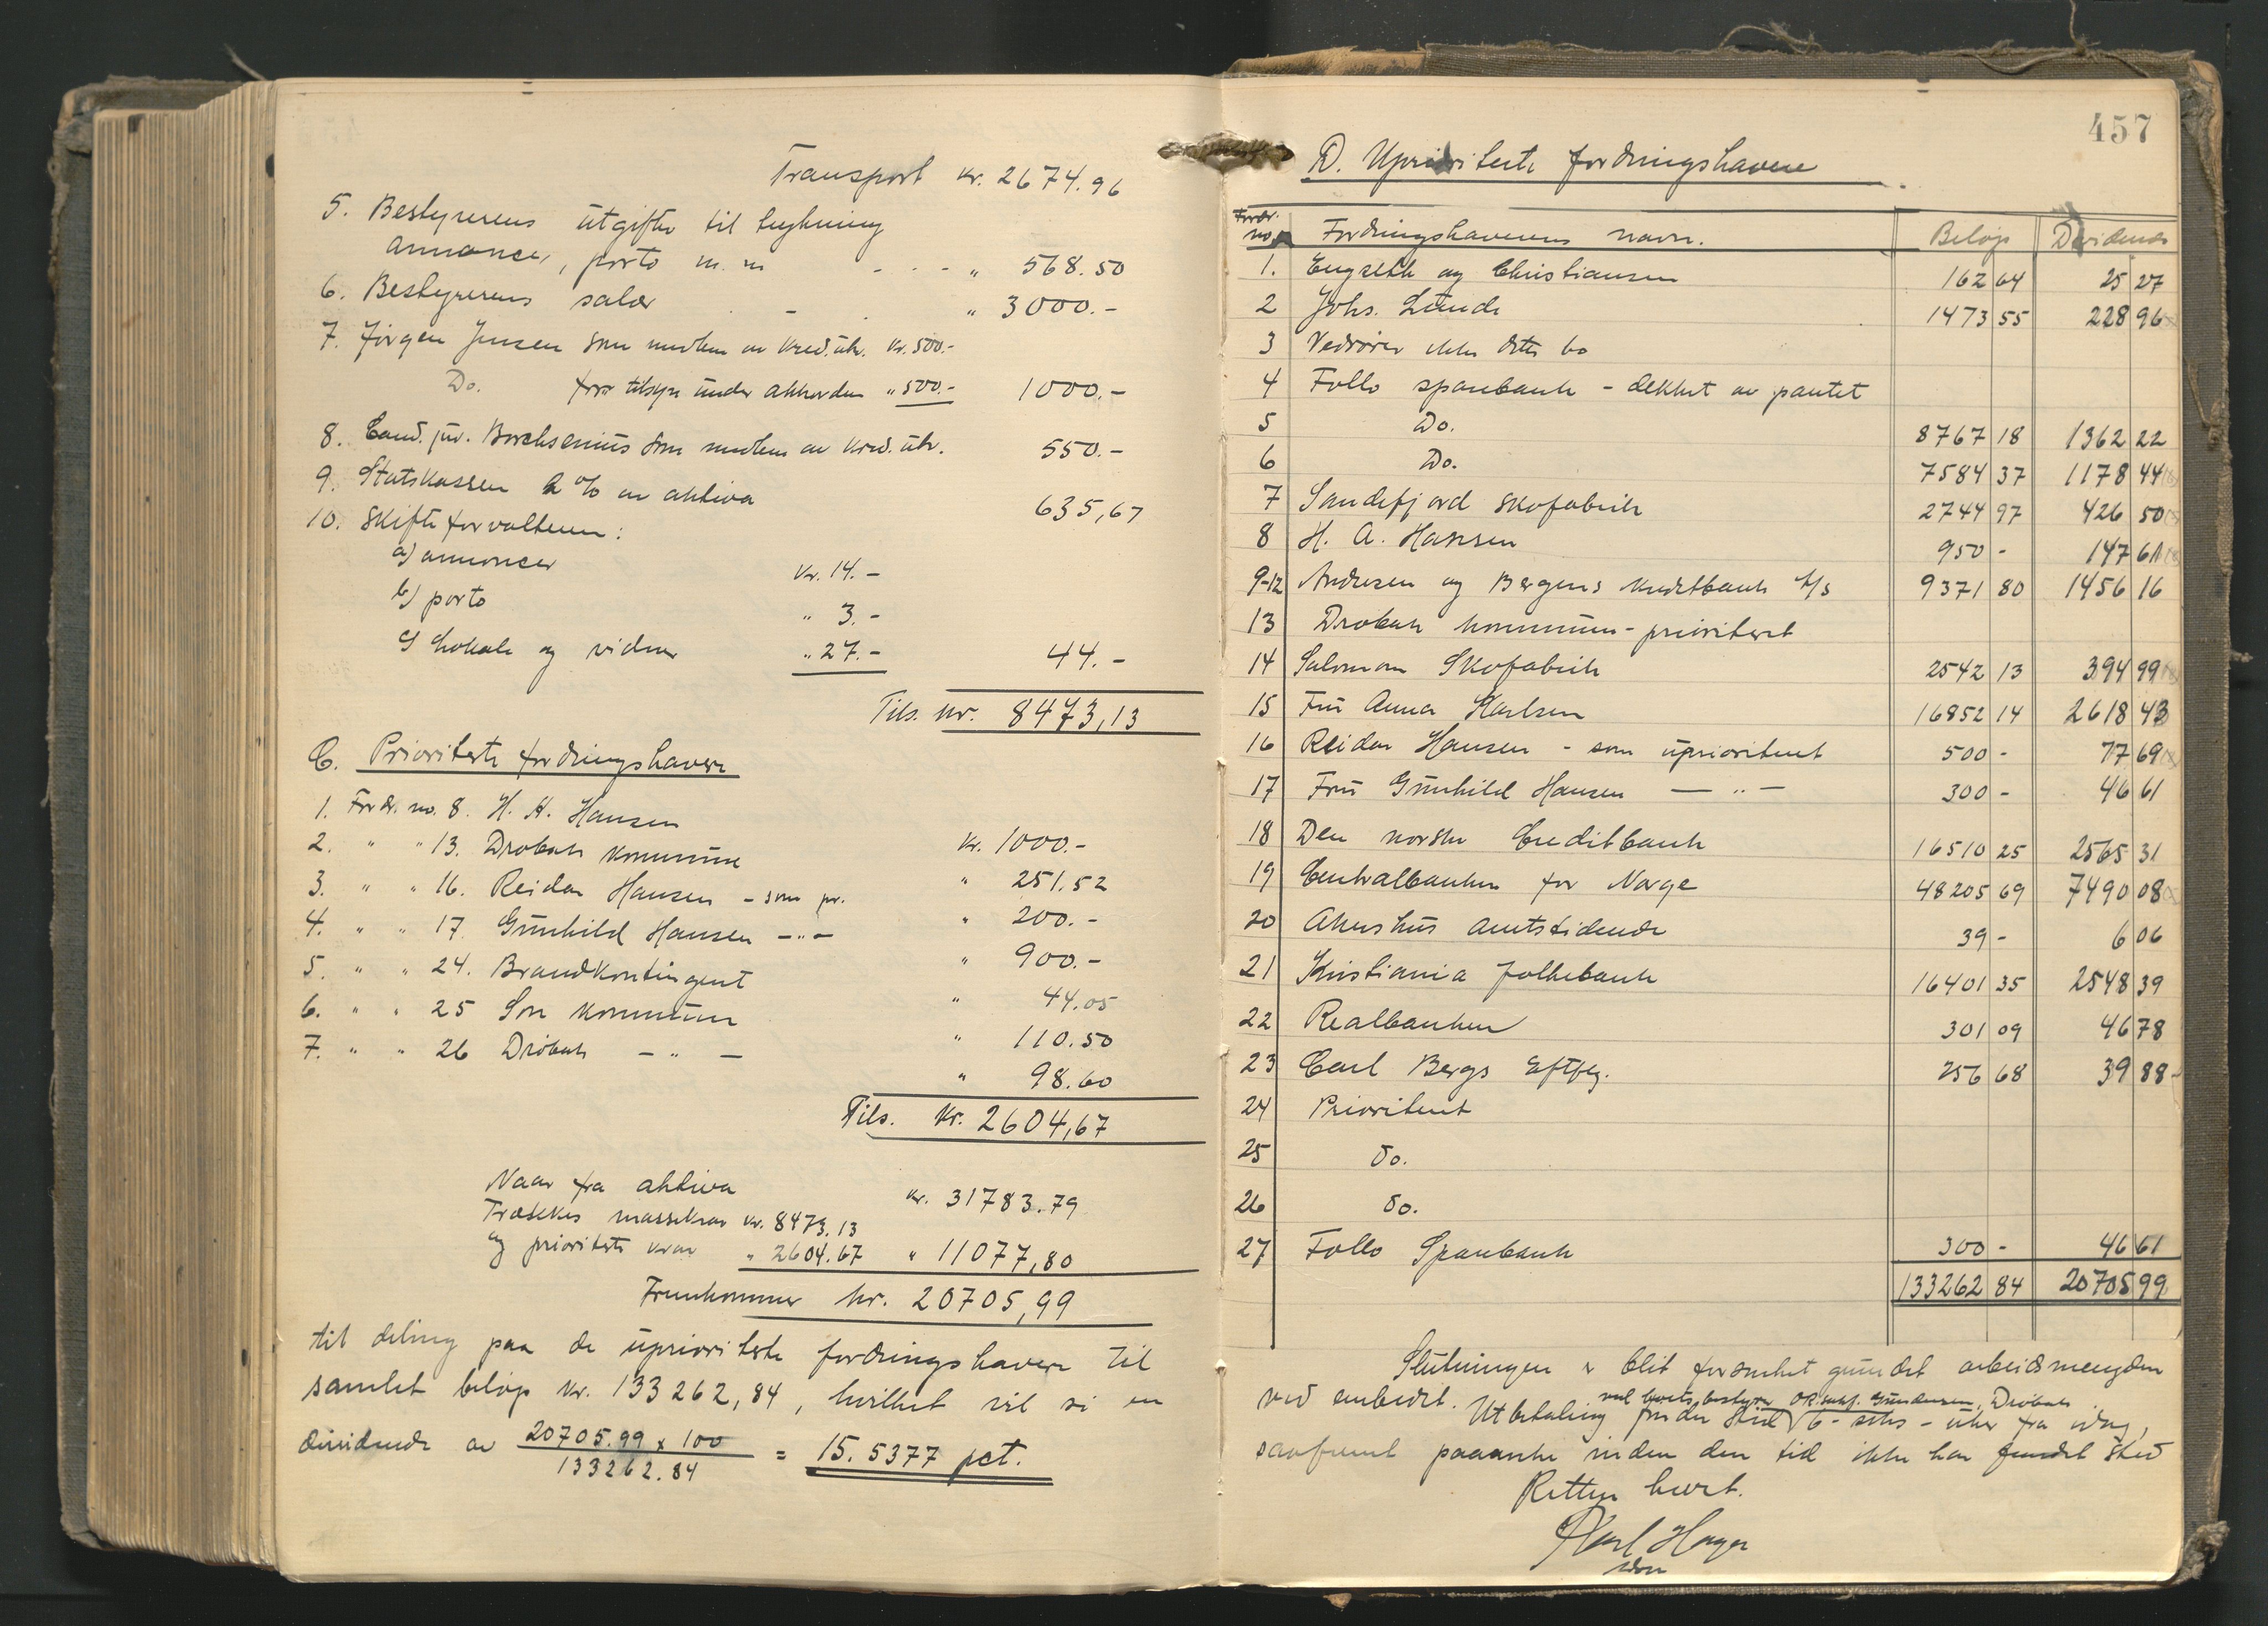 Transport kr. 2674.96
5. Bestyrerens utgifter til
annoncer, porto m. m - - - " 568.50
6. Bestyrerens salær - " 3000.-
7. Jørgen Jensen som medlem av kred.utv. kr. 500.-
Do. for tilsyn under akkorden " 500.- 1000.-
8. Cand. jur. Borchsenius som medlem av kred. utv. 550.-
9. Statskassen 2 % av aktiva 635,67
10. Skifteforvalteren:
a) annoncer kr. 14.-
b) porto " 3.-
c) Lokale og vidner " 27.- 44.-
Tils. kr. 8473,13
C. Prioriterte fordringshavere
1. Fordr. no. 8. H. A. Hansen kr. 1000.-
2. " " 13. Drøbak kommune " 251.52
3. " " 16. Reidar Hansen - som pr. " 200.-
4. " " 17. Gunhild Hansen - " - " 900.-
5. " " 24. Brandkontingent " 44.05
6. " " 25 Son kommune " 110.50
7. " " 26 Drøbak - " - " 98.60
Tils. kr. 2604,67
Naar fra aktiva kr. 31783.79
Trækkes massekrav kr. 8473.13
og prioriterte krav " 2604.67 " 11077,80
Fremkommer kr. 20705,99
til deling paa de upriorterte fordringshavere til
samlet beløp kr. 133262,84, hvilket vil si en
dividende av 20705.99 x 100 = 15.5377 pct.
133262.84
457
D. Upriorterte fordringshavere
Fordr. no. Fordringshaverens navn. Beløp Dividende
1. Engzelk og Christiansen 162 64 25 27
2 Johs. Lunde 1473 55 228 96
3 Vedrører ikke dette bo
4 Follo sparebank - dekket av pantet
5 Do. 8767 18 1362 22
6 Do. 7584 37 1178 44
7 Sandefjord Skofabrik 2744 97 426 50
8 H. A. Hansen 950 - 147 61
9-12 Andresen og Bergens Kreditbank A/s 9371 80 1456 16
13 Drøbak kommune - prioritert
14 Salomon Skofabrik 2542 13 394 99
15 Fru Anna Karlsen 16852 14 2618 43
16 Reidar Hansen - som uprioritert 500 - 77 69
17 Fru Gunhild Hansen - " - 300 - 46 61
18 Den norske Creditbank 16510 25 2565 31
19 Centralbanken for Norge 48205 69 7490 08
20 Akershus Amtstidende 39 - 6 06
21 Kristiania folkebank 16401 35 2548 39
22 Realbanken 301 09 46 78
23 Carl Bergs Eftflg. 256 68 39 88
24 Prioritert
25 do.
26 do.
27 Follo Sparebank 300 - 46 61
133262 84 20705 99
Slutningen er blit forsinket grundet arbeidsmengden
ved embedet. Utbetaling
ved boets bestyrer O.R.sakf. Gundersen, Drøbak
finder sted 6 - seks - uker fra idag,
savfremt paaanke inden den tid ikke har fundet sted
Retten hævet.
Karl Hagen